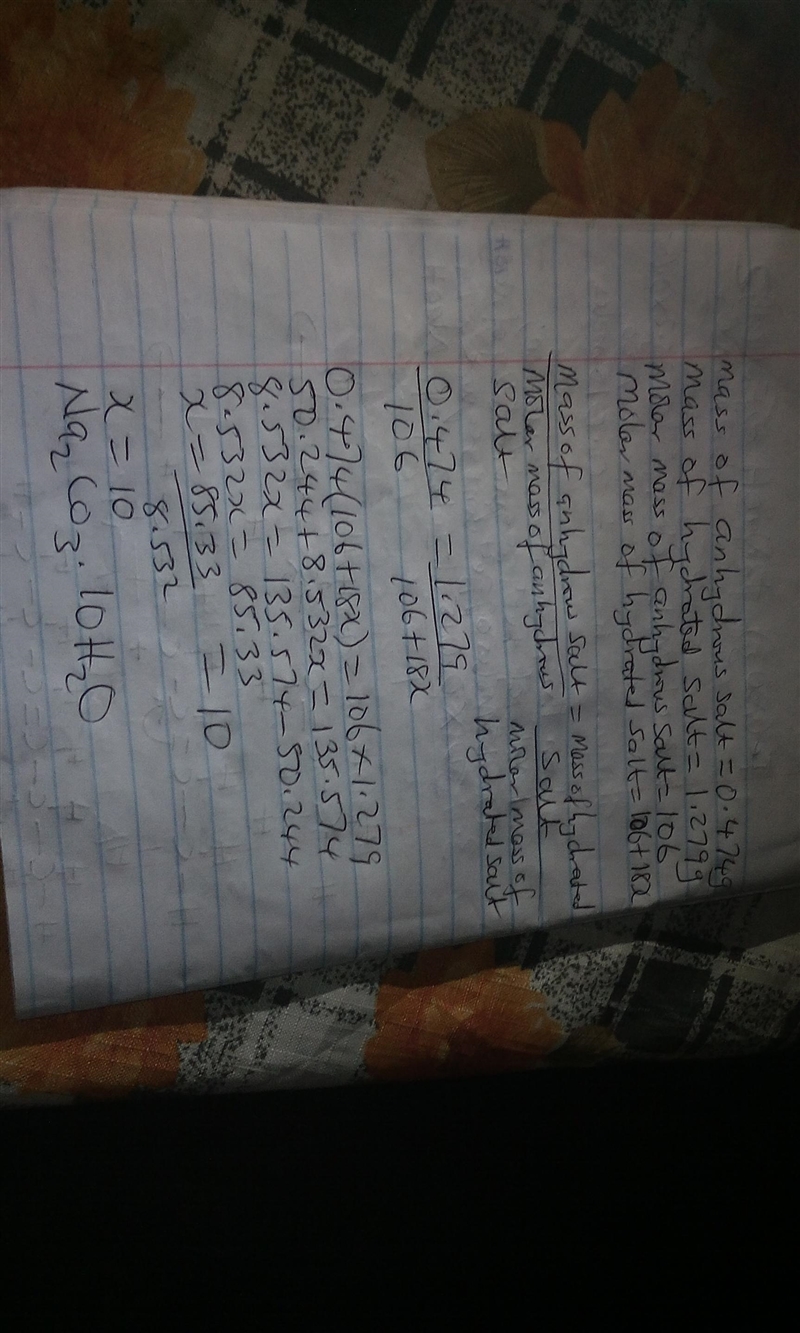 mass of anhydrous salt = 0.474g
mass of hydrated salt = 1.279g
Molar mass of anhydrous salt = 106
Molar mass of hydrated salt = 106+18x
Mass of anhydrous salt = Mass of hydrated salt
Molar mass of anhydrous salt molar mass of hydrated salt
0.474 = 1.279
106 106+18x
0.474(106+18x) = 106×1.279
50.244+8.532x = 135.574
8.532x = 135.574-50.244
8.532x = 85.33
x = 85.33 = 10
8.532
x = 10
Na₂CO₃.10H₂O